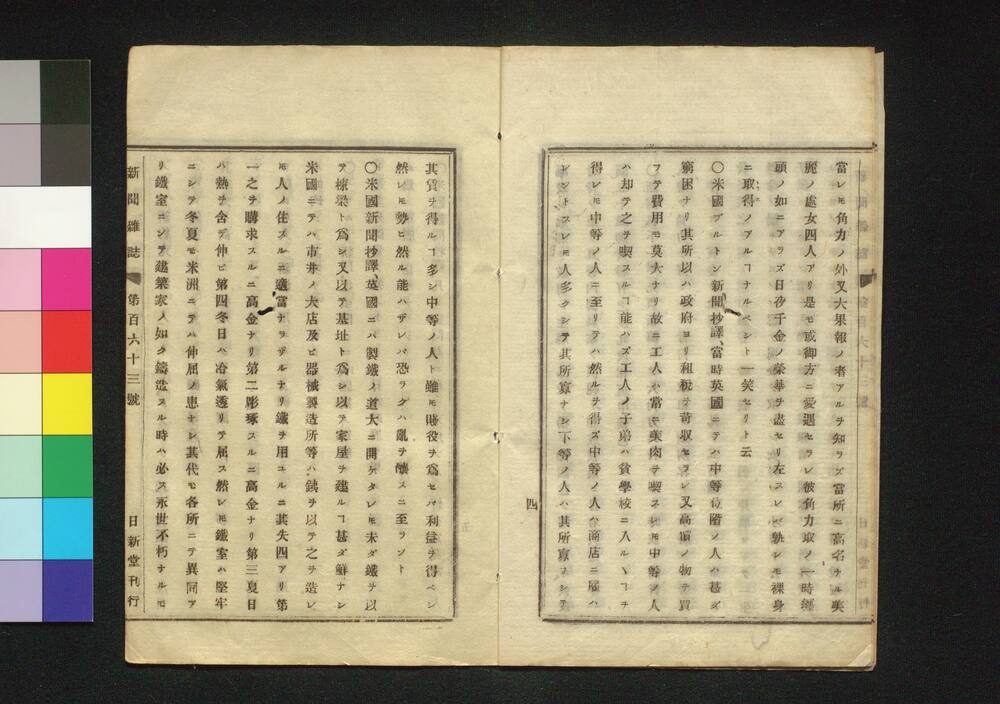 當レヒ角力ノ外又大果報ノ者アルヲ知ラズ當所ニ高名ナル美
麗ノ處女四人アリ是モ或御方ニ愛遇セラレ彼角力取ノ一時纒
頭ノ如ニアラズ日夜千金ノ榮華ヲ盡セリ左スレバ孰レモ裸身
ニ取得ノアルヿナルベシト一笑セリト云
〇米國ブルトン新聞抄譯、當時英國ニテハ中等位階ノ人ハ甚ダ
窮困ナリ其所以ハ政府ヨリ租税ヲ苛収セラレ又高價ノ物ヲ買
フテ費用モ莫大ナリ故ニ工人ハ常ニ美肉ヲ喫スレ𪜈中等ノ人
ハ却テ之ヲ喫スルヿ能ハズ工人ノ子弟ハ貧學校ニ入ルヽヿヲ
得レ𪜈中等ノ人ニ至リテハ然ルヲ得ズ中等ノ人ハ商店ニ雇ハ
レントスレ𪜈人多クシテ其所寡ナシ下等ノ人ハ其所寡フシテ
四
其賃ヲ得ルヿ多シ中等ノ人ト雖𪜈賤役ヲ爲セバ利益ヲ得ベシ
然レ𪜈勢ヒ然ル能ハザレバ恐ラクハ亂ヲ釀スニ至ラント
〇米國新聞抄譯、英國ニハ製鐵ノ道大ニ開ケタレ𪜈未ダ鐵ヲ以
テ棟梁ト爲シ又以テ基址ト爲シ以テ家屋ヲ建ルヿ甚ダ鮮ナシ
米國ニテハ市井ノ大店及ビ器械製造所等ハ鐵ヲ以テ之ヲ造レ
𪜈人ノ住スルニ適當ナラザルナリ鐵ヲ用ユルニ其失四アリ第
一之ヲ購求スルニ高金ナリ第二彫琢スルニ高金ナリ第三夏日
ハ熱ヲ含テ伸ビ第四冬日ハ冷氣透リテ屈ス然レ𪜈鐵室ハ堅牢
ニシテ冬夏モ米洲ニテハ伸屈ノ患ナシ其代モ各所ニテ異同ア
リ鐵室ニシテ建築家ノ如ク鑄造スル時ハ必ス永世不朽ナル𪜈
新聞雜誌 第百六十三號 日新堂刊行